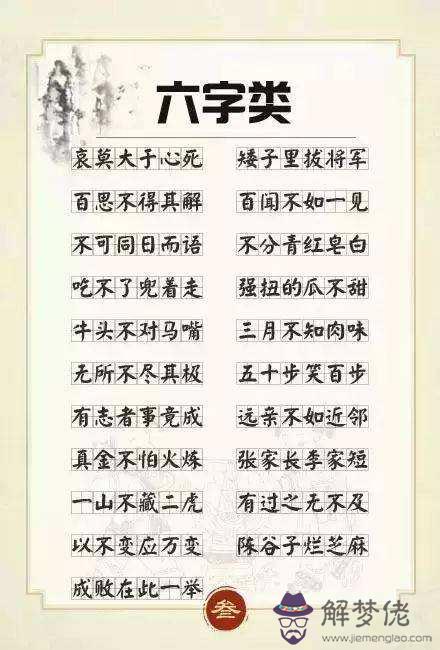 六字类
哀莫大于心死 矮子里拔将军
百思不得其解 百闻不如一见
不可同日而语 不分青红皂白
吃不了兜着走 强扭的瓜不甜
牛头不对马嘴 三月不知肉味
无所不尽其极 五十步笑百步
有志者事竟成 远亲不如近邻
真金不怕火炼 张家长李家短
一山不藏二虎 有过之无不及
以不变应万变 陈谷子烂芝麻
成败在此一举
叁
解梦佬
www.jiemenglao.com